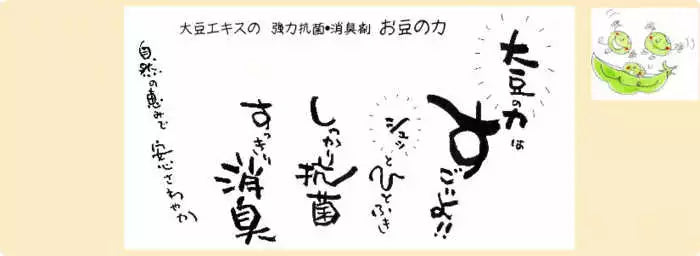 大豆エキスの 強力抗菌•消臭剤 お豆の力
大豆の力は
すごいよ!!
シュッとひとふき
しっかり抗菌
すっきり消臭
自然の恵みで 安心さわやか